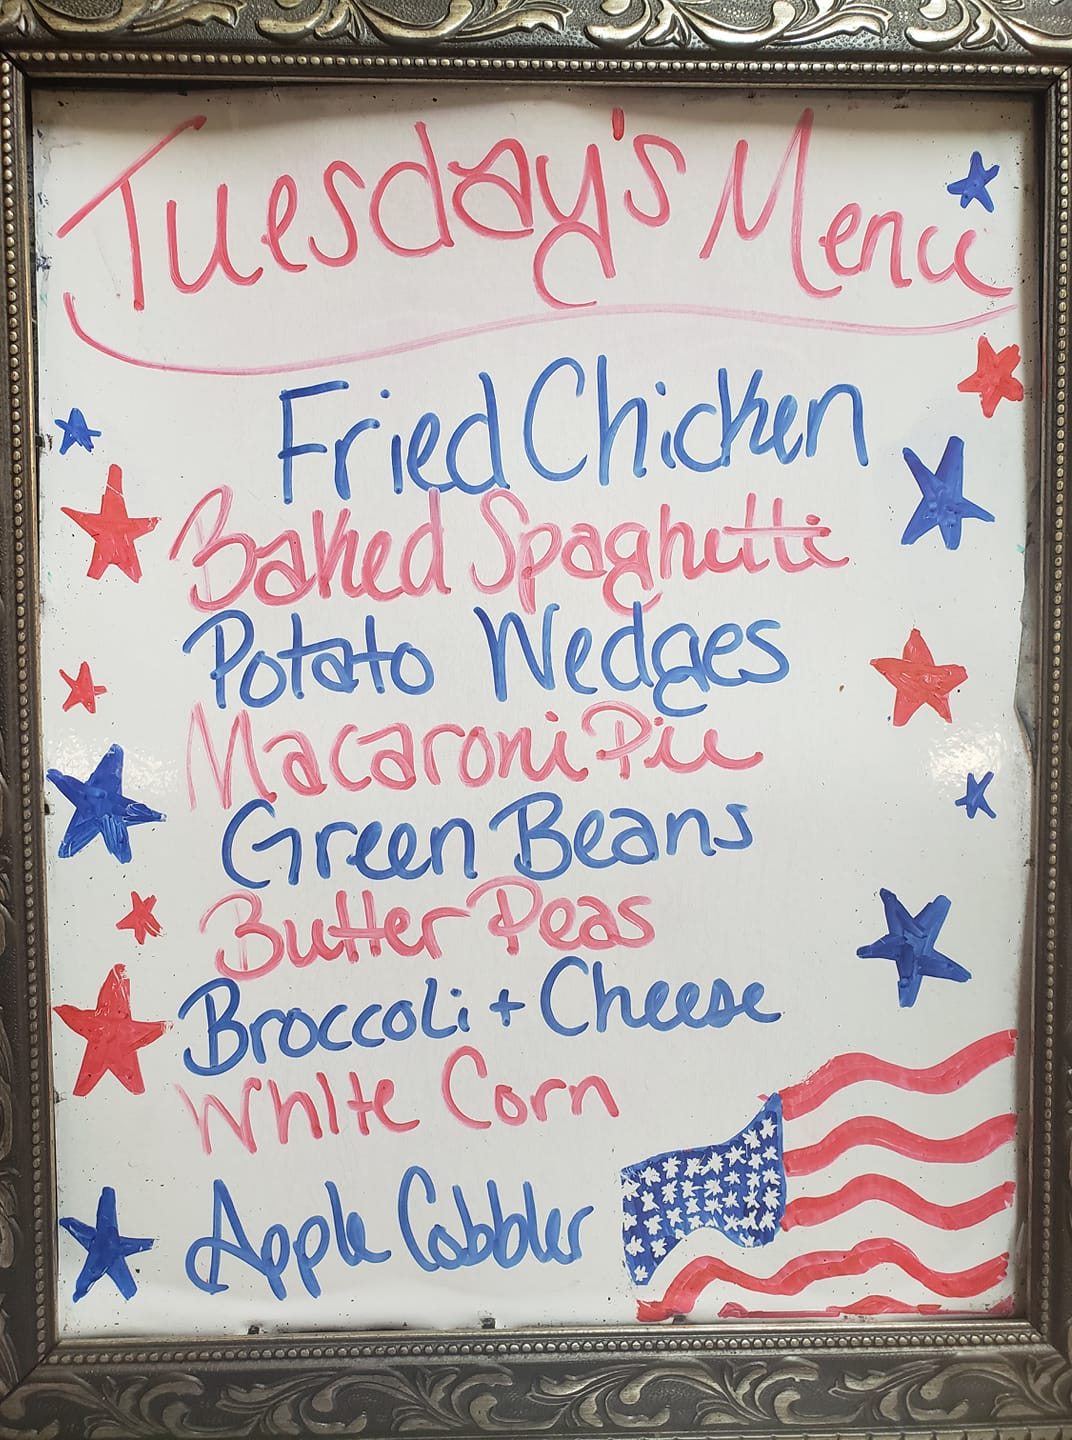 Tuesday's Menu
Fried Chicken
Baked Spaghetti
Potato Wedges
Macaroni Pie
Green Beans
Butter Peas
Broccoli + Cheese
White Corn
Apple Cobbler